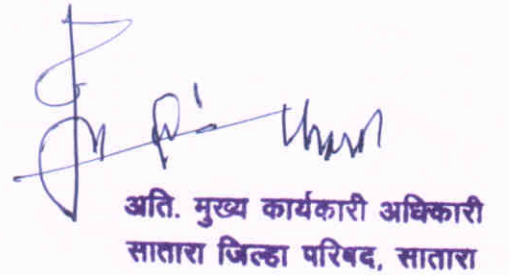 अति. मुख्य कार्यकारी अधिकारी
सातारा जिल्हा परिषद, सातारा